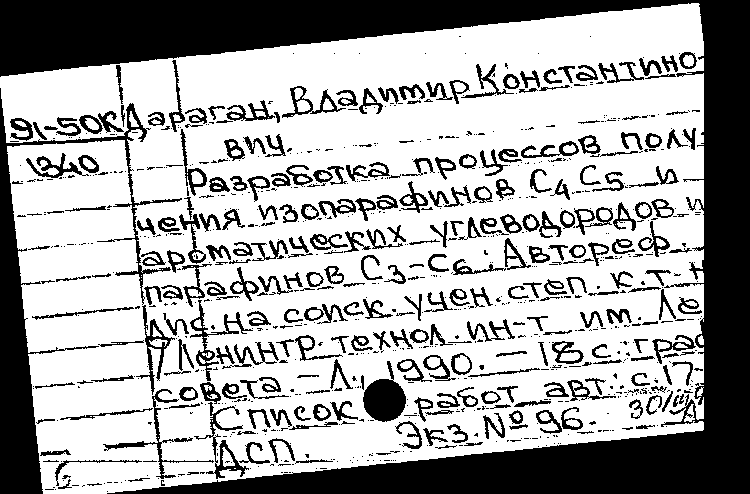 91-50К Дараган, Владимир Константино-
1340 вич.
Разработка процессов полу-
чения изопарафинов С4 С5 и
ароматических углеводородов и
парафинов С3-С6: Автореф.
дис. на соиск. учен. степ. к.т.н
/ Ленингр. технол. ин-т им. Ле
совета. - Л., 1990. - 18 с.: граф
Список работ авт.: с. 17.
ДСП. Экз. № 96.
6